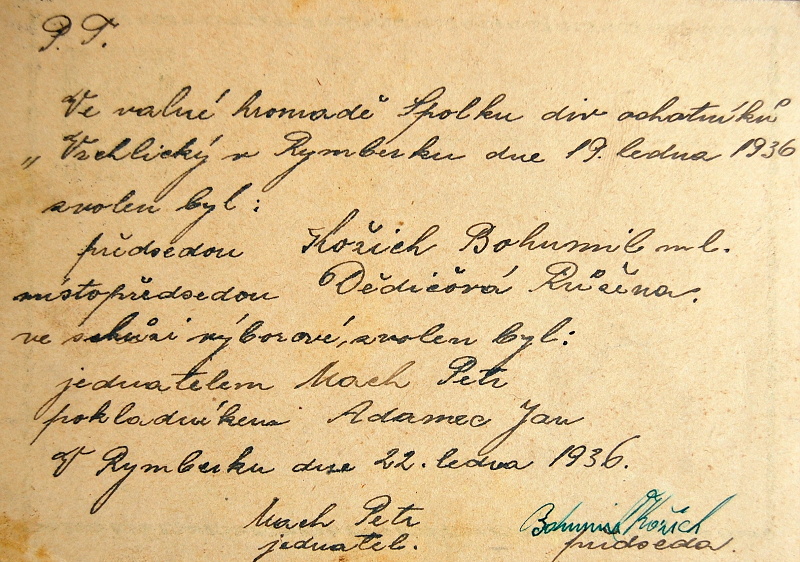 P. T.
Ve valné hromadě Spolku div ochotníků
„ Vrchlický v Rymberku dne 19. ledna 1936
zvolen byl:
předsedou Kožich Bohumil ml.
místopředsedou Dědičová Růžena.
ve schůzi výborové, zvolen byl:
jednatelem Mach Petr
pokladníkem Adamec Jan
V Rymberku dne 22. ledna 1936.
Mach Petr Bohumil Kožich
jednatel. předseda.